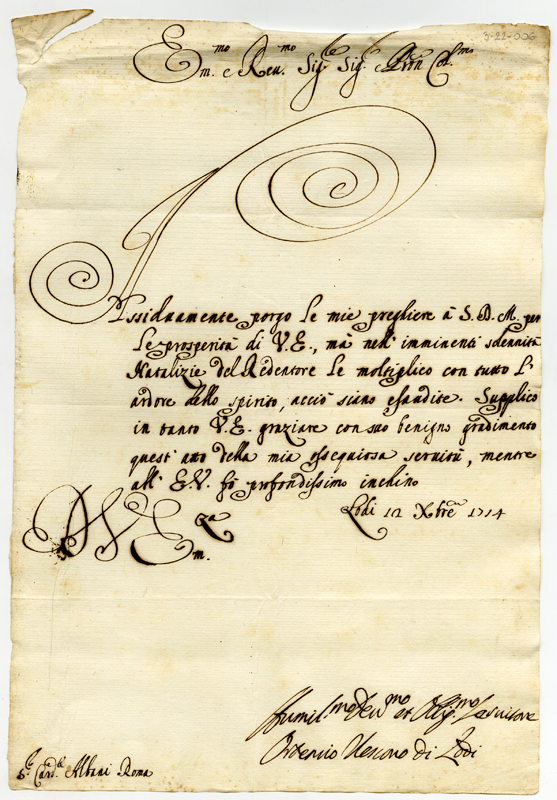 3-22-006
Em.mo e Rev.mo Sig.re Sig.r e Pron Col.mo
Assiduamente porgo le mie preghiere à S. D. M. per
le prosperità di V.E., mà nell' imminenti solennità
Natalizie del Redentore le moltiplico con tutto l'
ardore dello spirito, acciò siano esaudite. Supplico
in tanto V.E. graziare con suo benigno gradimento
quest' atto della mia ossequiosa servitù, mentre
all' E.V. fò profondissimo inchino
Lodi 12 Xbre 1714
D V Em.za
Humil.mo Dev.mo et Oblig.mo Servitore
Ortensio Vescovo di Lodi
S.r Card.le Albani Roma